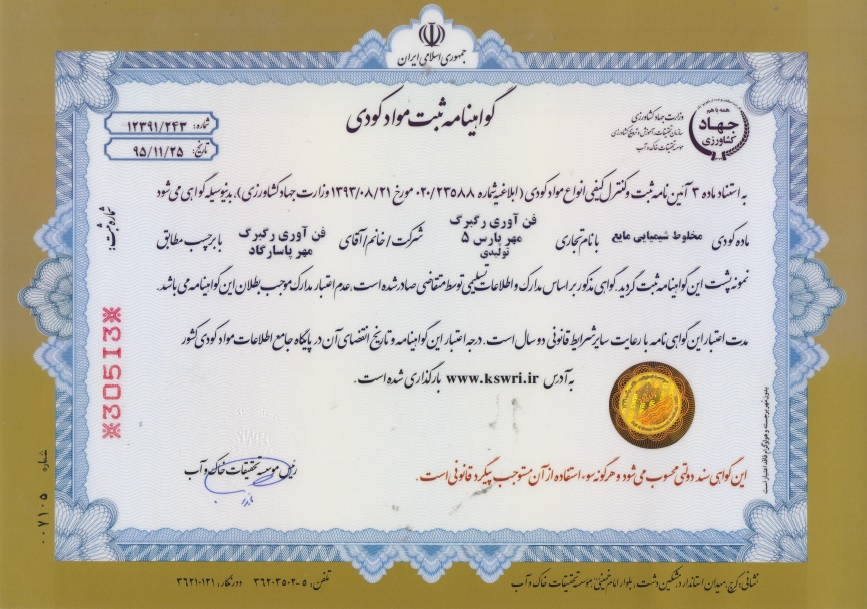 جمهوری اسلامی ایران
گواهینامه ثبت مواد کودی
شماره: ۱۲۳۹۱/۲۴۳
تاریخ: ۹۵/۱۱/۲۵
همه با هم
جهاد
کشاورزی
وزارت جهاد کشاورزی
سازمان تحقیقات، آموزش و ترویج کشاورزی
موسسه تحقیقات خاک و آب
به استناد ماده ۳ آئین نامه ثبت و کنترل کیفی انواع مواد کودی (ابلاغیه شماره ۰۲۰/۲۳۵۸۸ مورخ ۱۳۹۳/۰۸/۲۱ وزارت جهاد کشاورزی)، بدینوسیله گواهی می شود
ماده کودی مخلوط شیمیایی مایع با نام تجاری فن آوری رگبرگ مهر پارس ۵ تولیدی شرکت/خانم/آقای فن آوری رگبرگ مهر پاسارگاد با برچسب مطابق
نمونه پشت این گواهینامه ثبت گردید. گواهی مذکور بر اساس مدارک و اطلاعات تسلیمی توسط متقاضی صادر شده است. عدم اعتبار مدارک موجب بطلان این گواهینامه می باشد.
مدت اعتبار این گواهی نامه با رعایت سایر شرایط قانونی دو سال است. درجه اعتبار این گواهینامه و تاریخ انقضای آن در پایگاه جامع اطلاعات مواد کودی کشور
به آدرس www.kswri.ir بارگذاری شده است.
شماره ثبت:
*30513*
رئیس موسسه تحقیقات خاک و آب
این گواهی سند دولتی محسوب می شود و هرگونه سوء استفاده از آن مستوجب پیگرد قانونی است.
بدون مهر برجسته و هولوگرام فاقد اعتبار است
شماره ۰۰۷۱۰۵
نشانی: کرج، میدان استاندارد، مشکین دشت، بلوار امام خمینی، موسسه تحقیقات خاک و آب
تلفن: ۵-۳۶۲۰۳۵۰۲ دورنگار: ۳۶۲۱۰۱۲۱